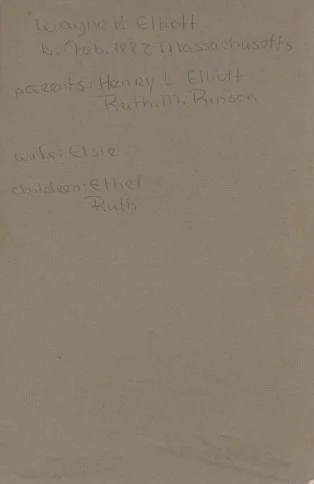 Wayne H. Elliott
b. Feb. 1882 Massachusetts
parents: Henry L Elliott
Ruth. M. Rinson
wife: Elsie
children: Ethel
Ruth